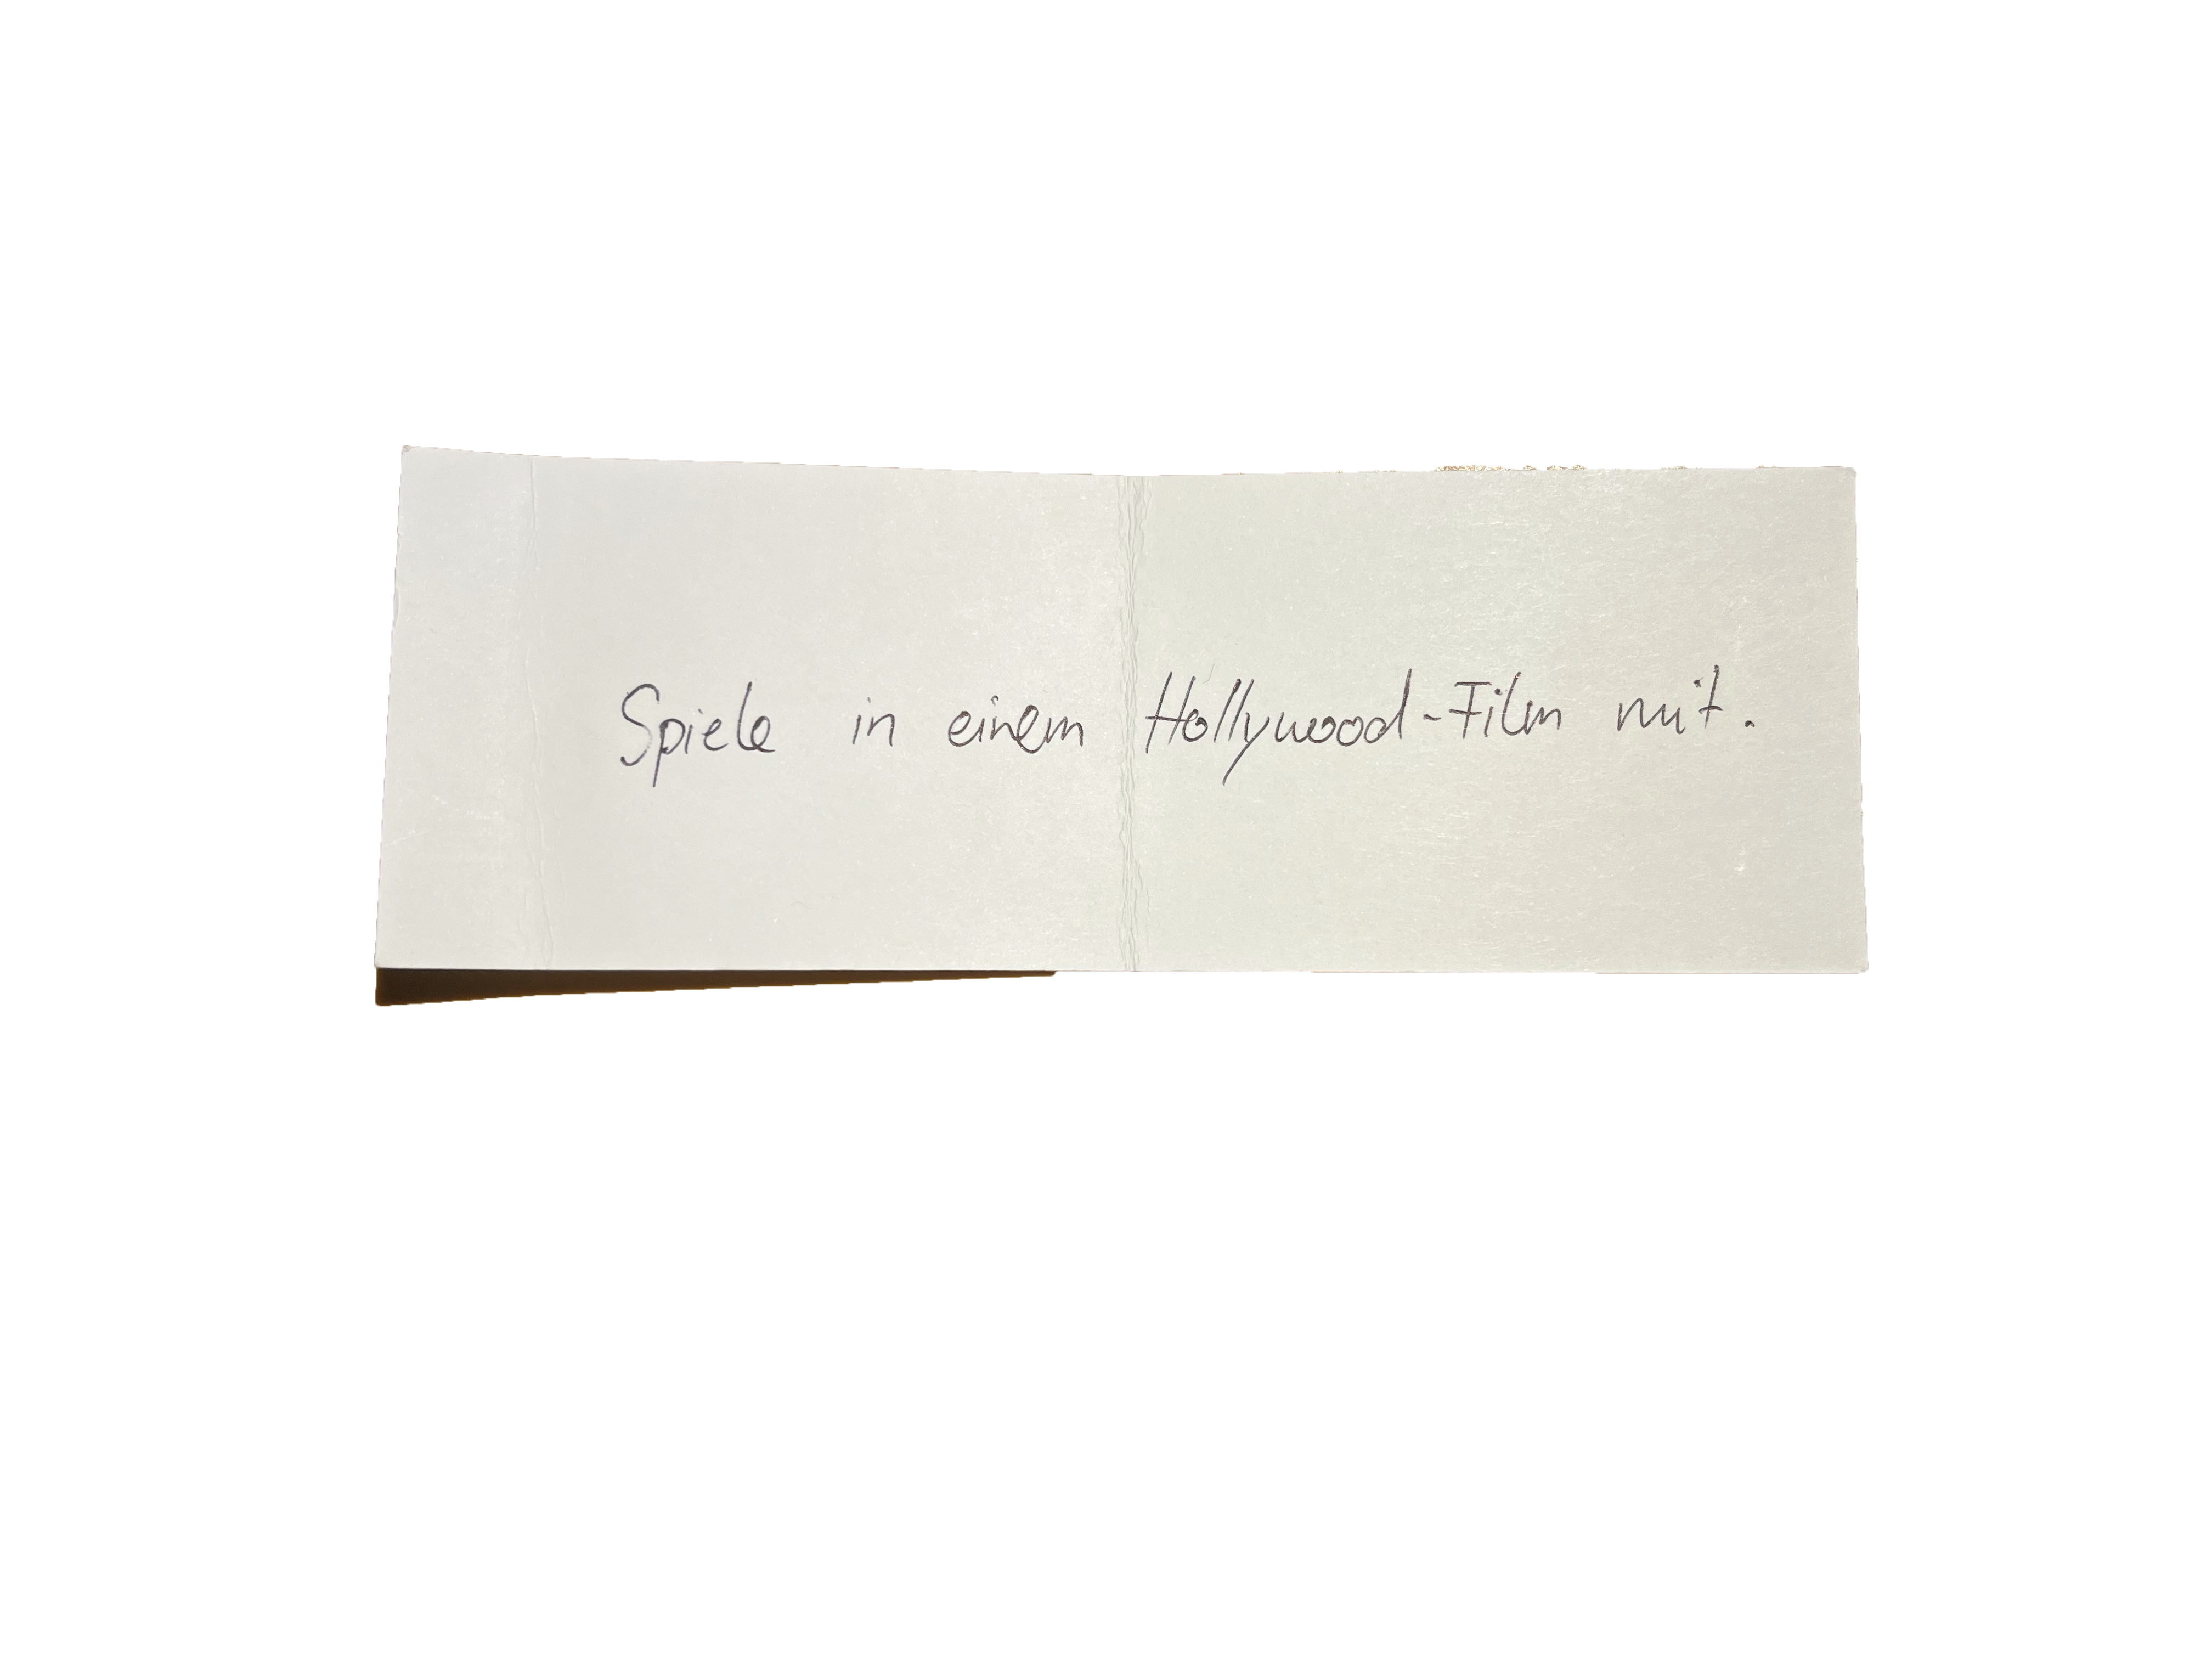 Spiele in einem Hollywood-Film mit.